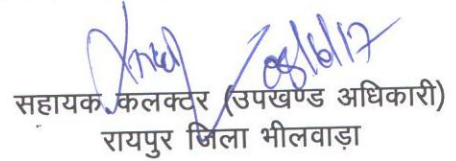 08/6/17
सहायक कलक्टर (उपखण्ड अधिकारी)
रायपुर जिला भीलवाड़ा